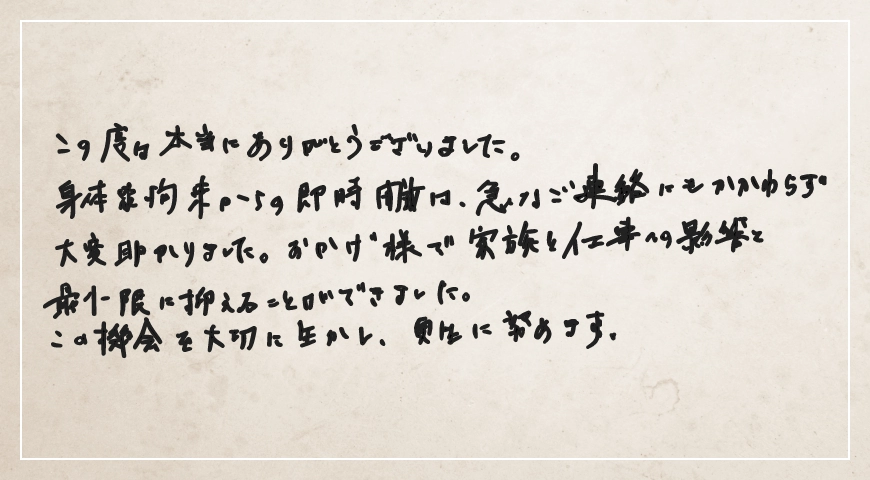 この度は本当にありがとうございました。
身体拘束からの即時開放は、急なご連絡にもかかわらず
大変助かりました。おかげ様で家族と仕事への影響と
最小限に抑えることができました。
この機会を大切に生かし、更生に努めます。